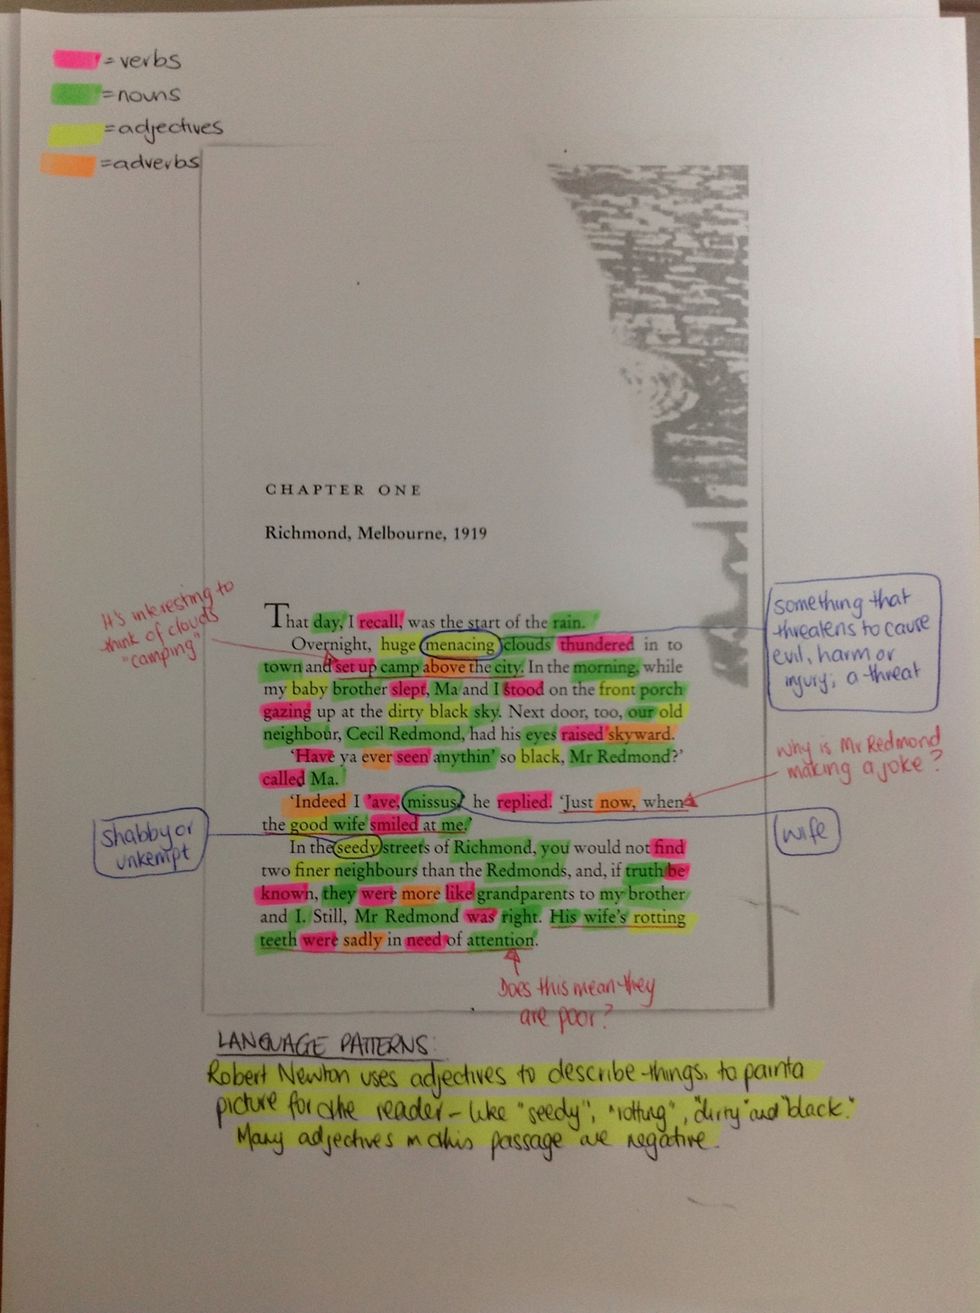 = verbs
= nouns
= adjectives
= adverbs
CHAPTER ONE
Richmond, Melbourne, 1919
It's interesting to
think of clouds
"camping"
That day, I recall, was the start of the rain.
Overnight, huge menacing clouds thundered in to
town and set up camp above the city. In the morning, while
my baby brother slept, Ma and I stood on the front porch
gazing up at the dirty black sky. Next door, too, our old
neighbour, Cecil Redmond, had his eyes raised skyward.
'Have ya ever seen anythin' so black, Mr Redmond?'
called Ma.
'Indeed I 'ave, missus,' he replied. 'Just now, when
the good wife smiled at me.'
In the seedy streets of Richmond, you would not find
two finer neighbours than the Redmonds, and, if truth be
known, they were more like grandparents to my brother
and I. Still, Mr Redmond was right. His wife's rotting
teeth were sadly in need of attention.
something that
threatens to cause
evil, harm or
injury; a threat
Why is Mr Redmond
making a joke?
wife
shabby or
unkempt
Does this mean they
are poor?
LANGUAGE PATTERNS:
Robert Newton uses adjectives to describe things, to paint a
picture for the reader - like "seedy", "rotting", "dirty" and "black."
Many adjectives in this passage are negative.